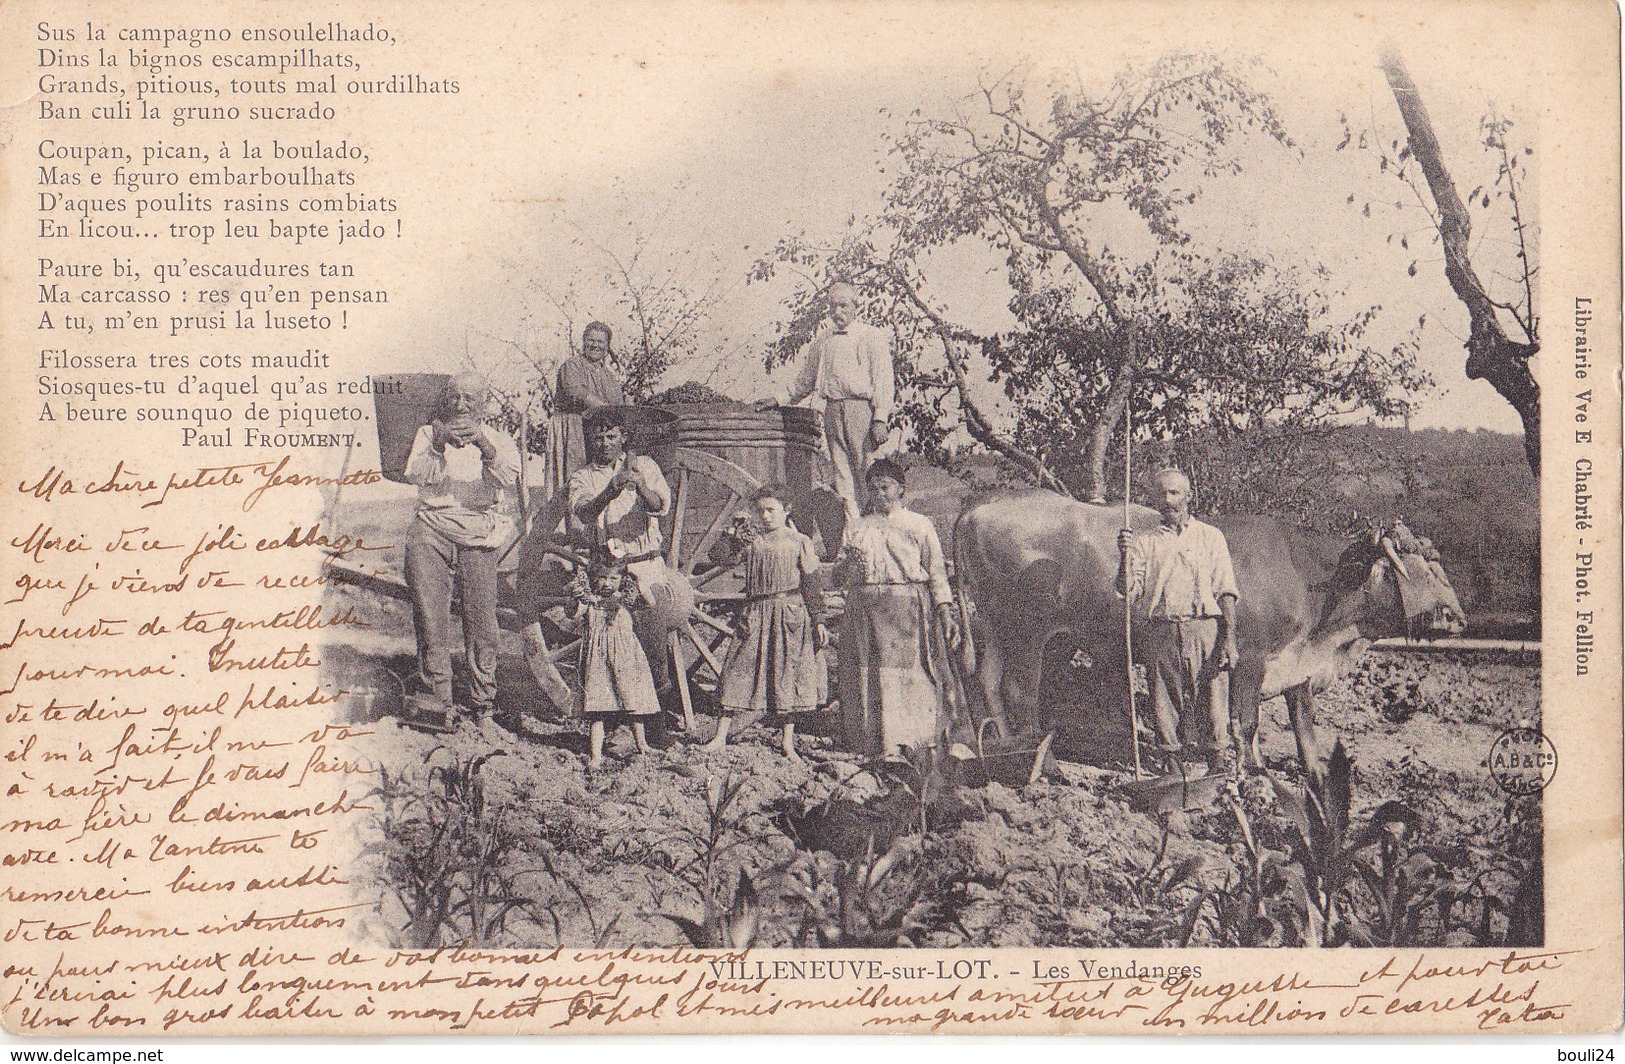 Sus la campagno ensoulelhado,
Dins la bignos escampilhats,
Grands, pitious, touts mal ourdilhats
Ban culi la gruno sucrado
Coupan, pican, à la boulado,
Mas e figuro embarboulhats
D'aques poulits rasins combiats
En licou... trop leu bapte jado !
Paure bi, qu'escaudures tan
Ma carcasso : res qu'en pensan
A tu, m'en prusi la luseto !
Filossera tres cots maudit
Siosques-tu d'aquel qu'as reduit
A beure sounquo de piqueto.
Paul FROUMENT.
Ma chère petite Jeannette
Merci de ce joli
que je viens de recevoir
preuve de ta gentillesse
pour moi. Inutile
de te dire quel plaisir
il m'a fait, il me va
à ravir et je vais faire
ma fière le dimanche
avec. Ma Tantine te
remercie bien aussi
de ta bonne intention
ou pour mieux dire de vos bonnes intentions
j'écrirai plus longuement dans quelques jours
Un bon gros baiser à mon petit Popol et mes meilleures amitiés à Gugusse et pour toi
ma grande sœur un million de caresses
Tata
VILLENEUVE-sur-LOT. - Les Vendanges
Librairie Vve E Chabrié - Phot. Fellion
A.B & Cº
bouli24